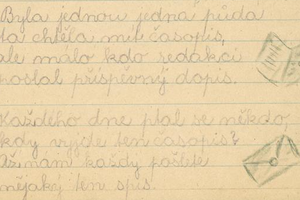 Byla jednou jedna půda
ta chtěla mít časopis,
ale málo kdo redakci
poslal příspěvný dopis.
Každého dne ptal se někdo
kdy vyjde ten časopis?
Až nám každý pošlete
nějaký ten spis.